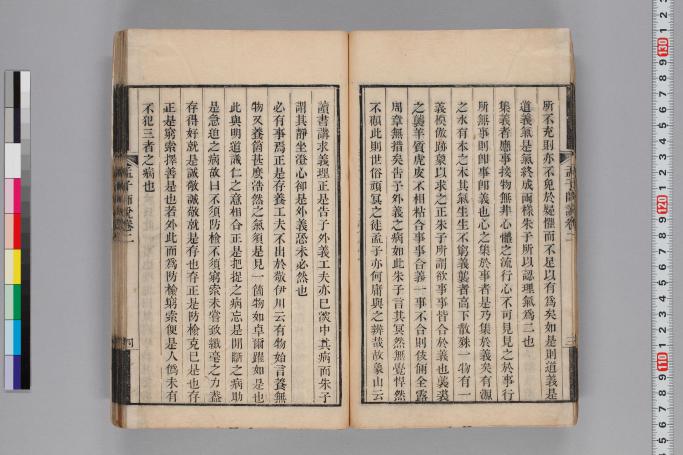 所不充則亦不免於疑懼而不足以有爲矣如是則道義是
道義氣是氣終成兩樣朱子所以認理氣爲二也
集義者應事接物無非心體之流行心不可見見之於事行
所無事則卽事卽義也心之集於事者是乃集於義矣有源
之水有本之木其氣生生不窮義襲者高下散殊一物有一
義模倣跡象以求之正朱子所謂欲事事皆合於義也襲裘
之襲羊質虎皮不相粘合事事合義一事不合則伎倆全露
周章無措矣告子外義之病如此朱子言其冥然無覺悍然
不顧此則世俗頑冥之徒孟子亦何庸與之辨哉故象山云
讀書講求義理正是告子外義工夫亦已深中其病而朱子
謂其靜坐澄心卻是外義恐未必然也
必有事焉正是存養工夫不出於敬伊川云有物始言養無
物又養箇甚麽浩然之氣須是見一箇物如卓爾躍如是也
此與明道識仁之意相合正是把捉之病忘是閒斷之病助
是急迫之病故曰不須防檢不須窮索未嘗致纖毫之力蓋
存得好就是誠敬誠敬就是存也存正是防檢克已是也存
正是窮索擇善是也若外此而爲防檢窮索便是人僞未有
不犯三者之病也
孟子師說卷二
三
四